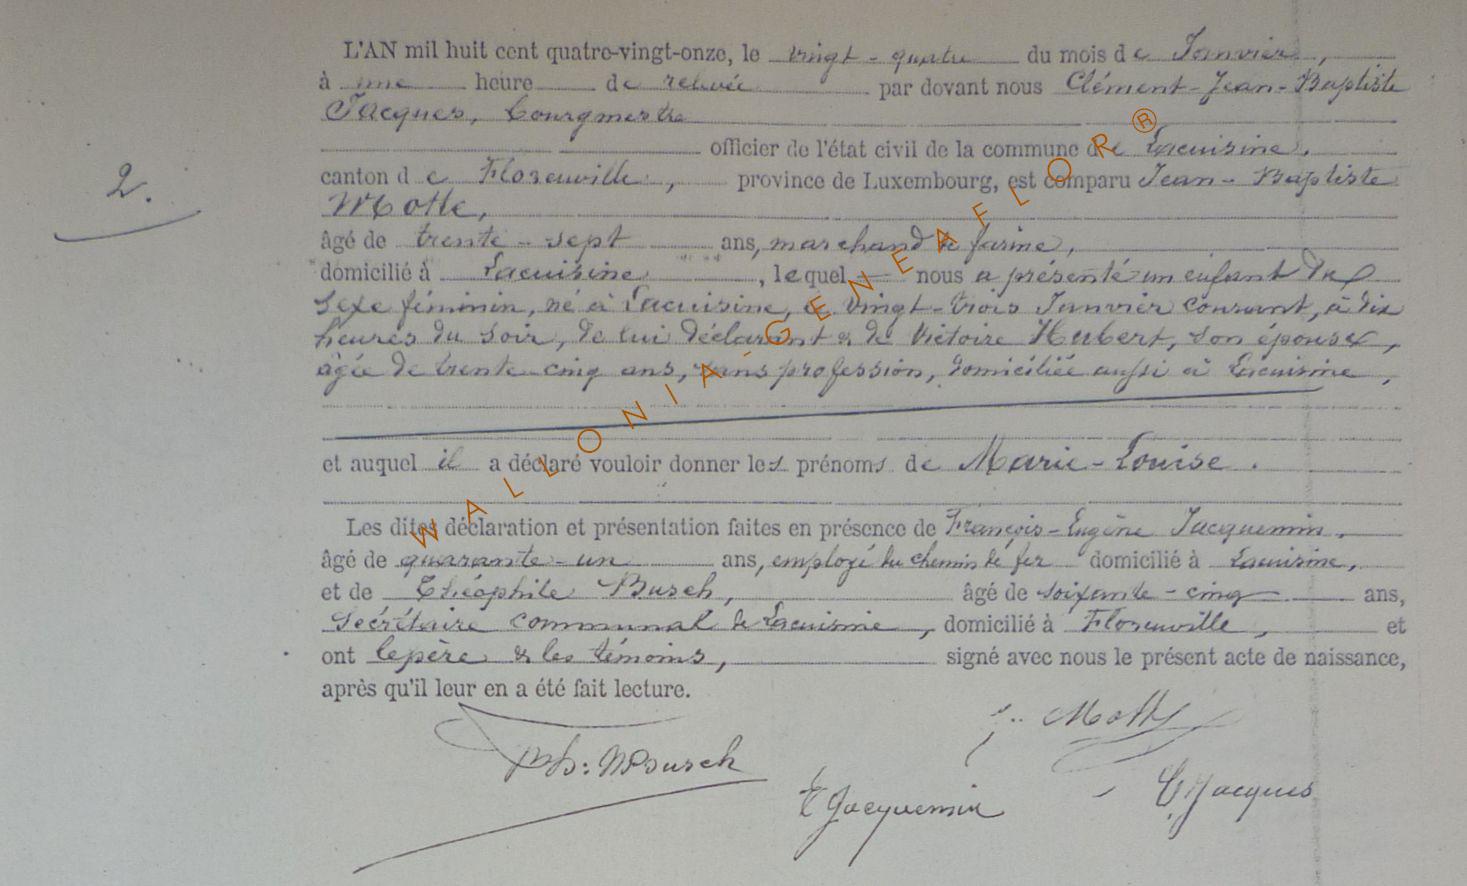 L'AN mil huit cent quatre-vingt-onze, le vingt-quatre du mois de Janvier,
à une heure de relevée par devant nous Clément-Jean-Baptiste
Jacques, bourgmestre
officier de l'état civil de la commune de Lacuisine,
2.
canton de Florenville, province de Luxembourg, est comparu Jean-Baptiste
Motte,
âgé de trente-sept ans, marchand de farine,
domicilié à Lacuisine, lequel nous a présenté un enfant du
sexe féminin, né à Lacuisine, le vingt-trois Janvier courant, à dix
heures du soir, de lui déclarant & de Victoire Hubert, son épouse,
âgée de trente-cinq ans, sans profession, domiciliée aussi à Lacuisine,
et auquel il a déclaré vouloir donner les prénoms de Marie-Louise.
Les dites déclaration et présentation faites en présence de François-Eugène Jacquemin,
âgé de quarante-un ans, employé du chemin de fer domicilié à Lacuisine,
et de Théophile Busch, âgé de soixante-cinq ans,
Secrétaire communal de Lacuisine, domicilié à Florenville, et
ont le père & les témoins, signé avec nous le présent acte de naissance,
après qu'il leur en a été fait lecture.
Motte
Th: Busch
E Jacquemin
C. Jacques
WALLONIA-GENEAFLOR®